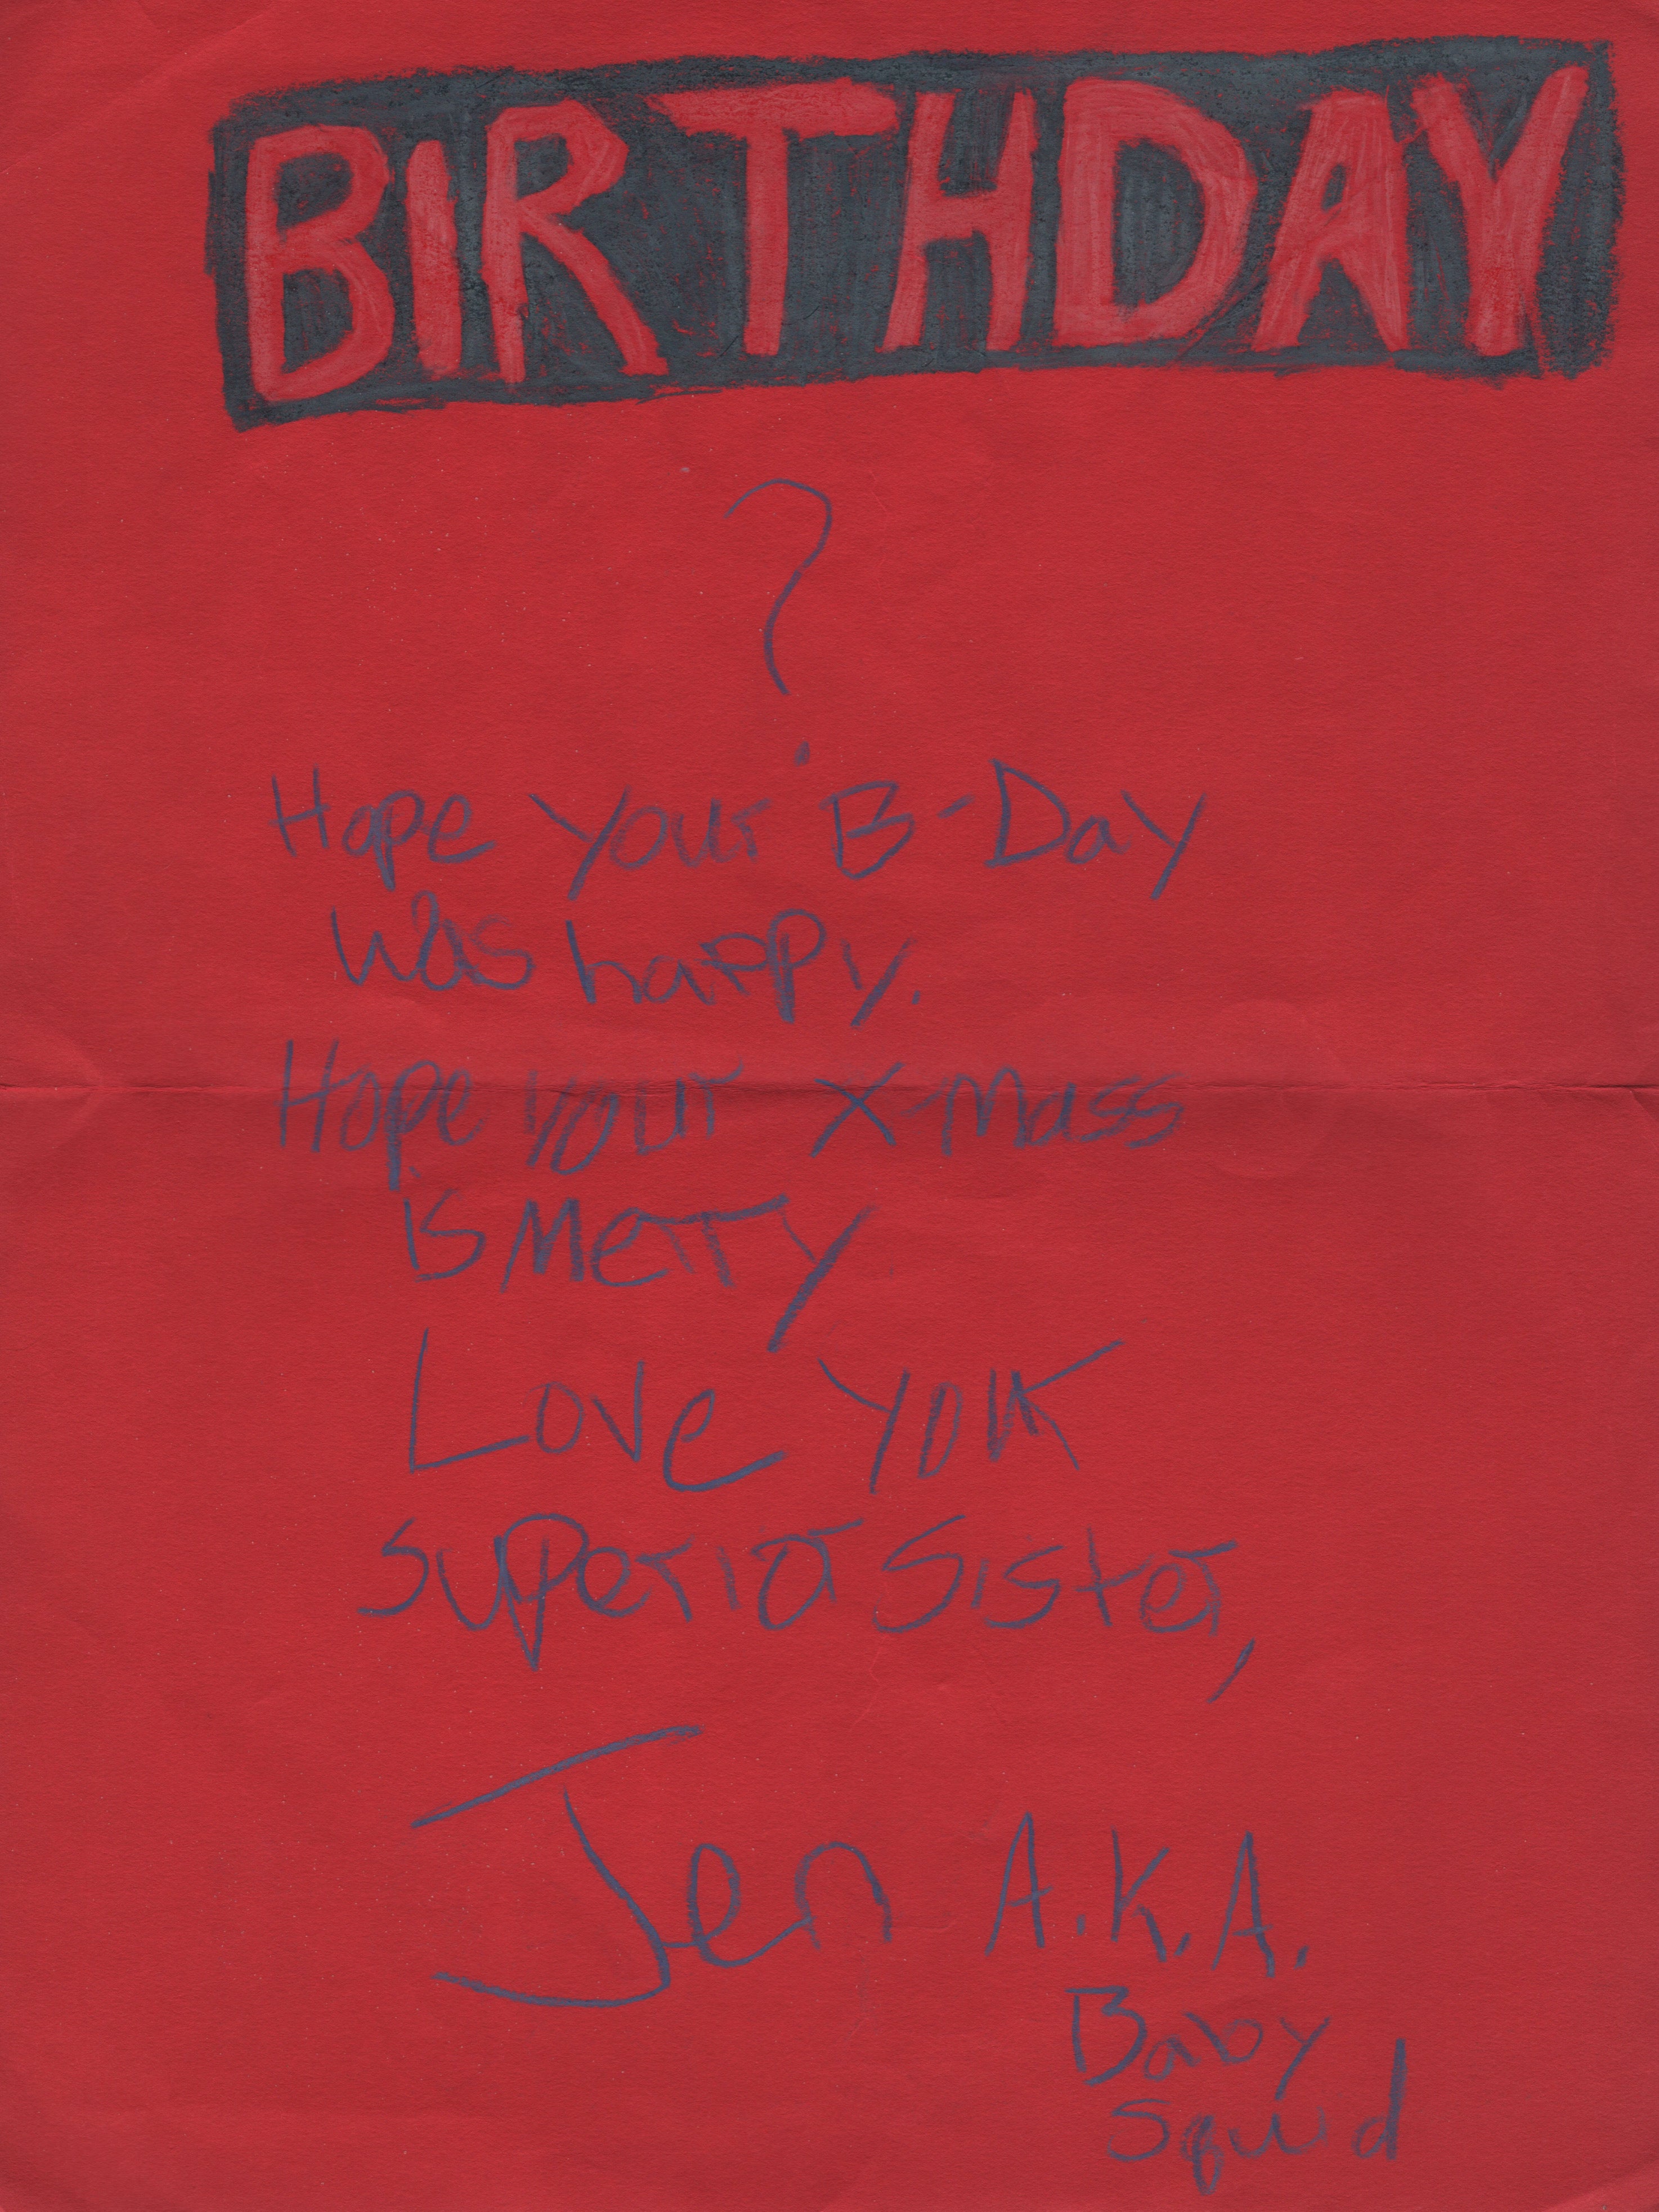 BIRTHDAY
?
Hope your B-Day
was happy.
Hope your X-mass
is merry
Love your
superior sister,
Jen A.K.A.
Baby
Squid